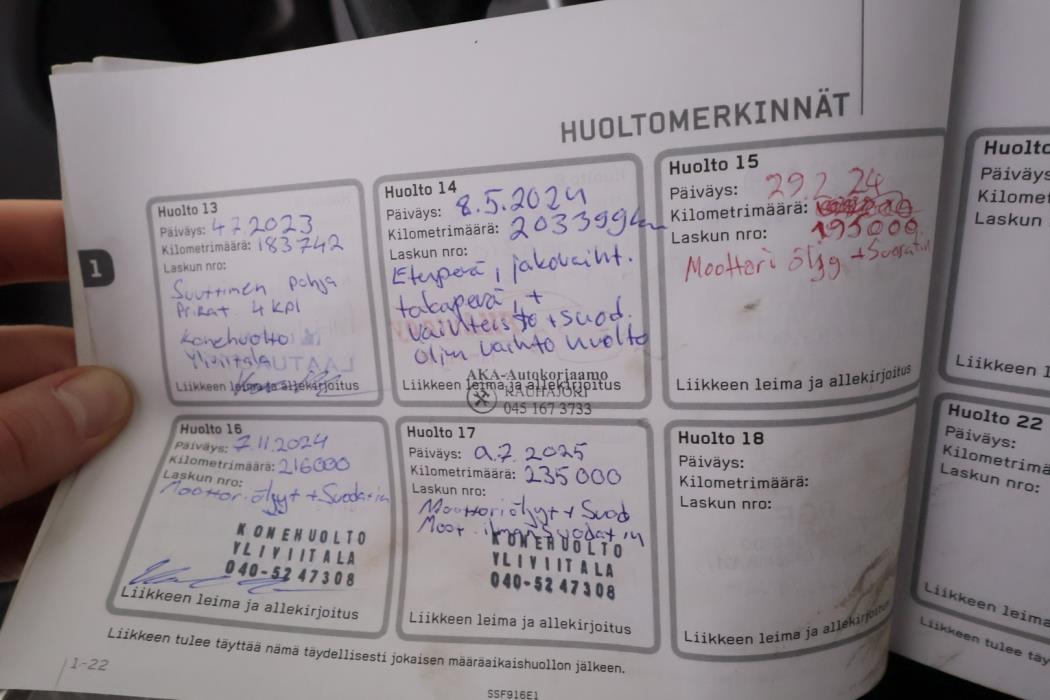 HUOLTOMERKINNÄT
1
Huolto 13
Päiväys: 4.7.2023
Kilometrimäärä: 183742
Laskun nro:
Suuttimen pohja
Prikat 4 kpl
Konehuolto
Yliviitala
Liikkeen leima ja allekirjoitus
Huolto 14
Päiväys: 8.5.2024
Kilometrimäärä: 203399km
Laskun nro:
Etuperä, jakovaiht.
takaperä +
vaihteisto + suod.
öljyn vaihto huolto
Liikkeen leima ja allekirjoitus
AKA-Autokorjaamo
RAUHAJORI
045 167 3733
Huolto 15
Päiväys: 29.2.24
Kilometrimäärä:
193000.
Laskun nro:
Moottori öljy + Suodatin
Liikkeen leima ja allekirjoitus
Huolto 16
Päiväys: 7.11.2024
Kilometrimäärä: 216000
Laskun nro:
Moottori öljyt + Suodatin
KONEHUOLTO
YLIVIITALA
040-5247308
Liikkeen leima ja allekirjoitus
Huolto 17
Päiväys: 9.7.2025
Kilometrimäärä: 235000
Laskun nro:
Moottoriöljyt + Suod
Moot. ilmansuodatin
KONEHUOLTO
YLIVIITALA
040-5247308
Liikkeen leima ja allekirjoitus
Huolto 18
Päiväys:
Kilometrimäärä:
Laskun nro:
Liikkeen leima ja allekirjoitus
Liikkeen tulee täyttää nämä täydellisesti jokaisen määräaikaishuollon jälkeen.
1-22
SSF916E1
Huolto
Päiväys
Kilomet
Laskun
Liikkeen l
Huolto 22
Päiväys:
Kilometrimä
Laskun nro:
Liikkeen leima
Liikkeen tulee täy